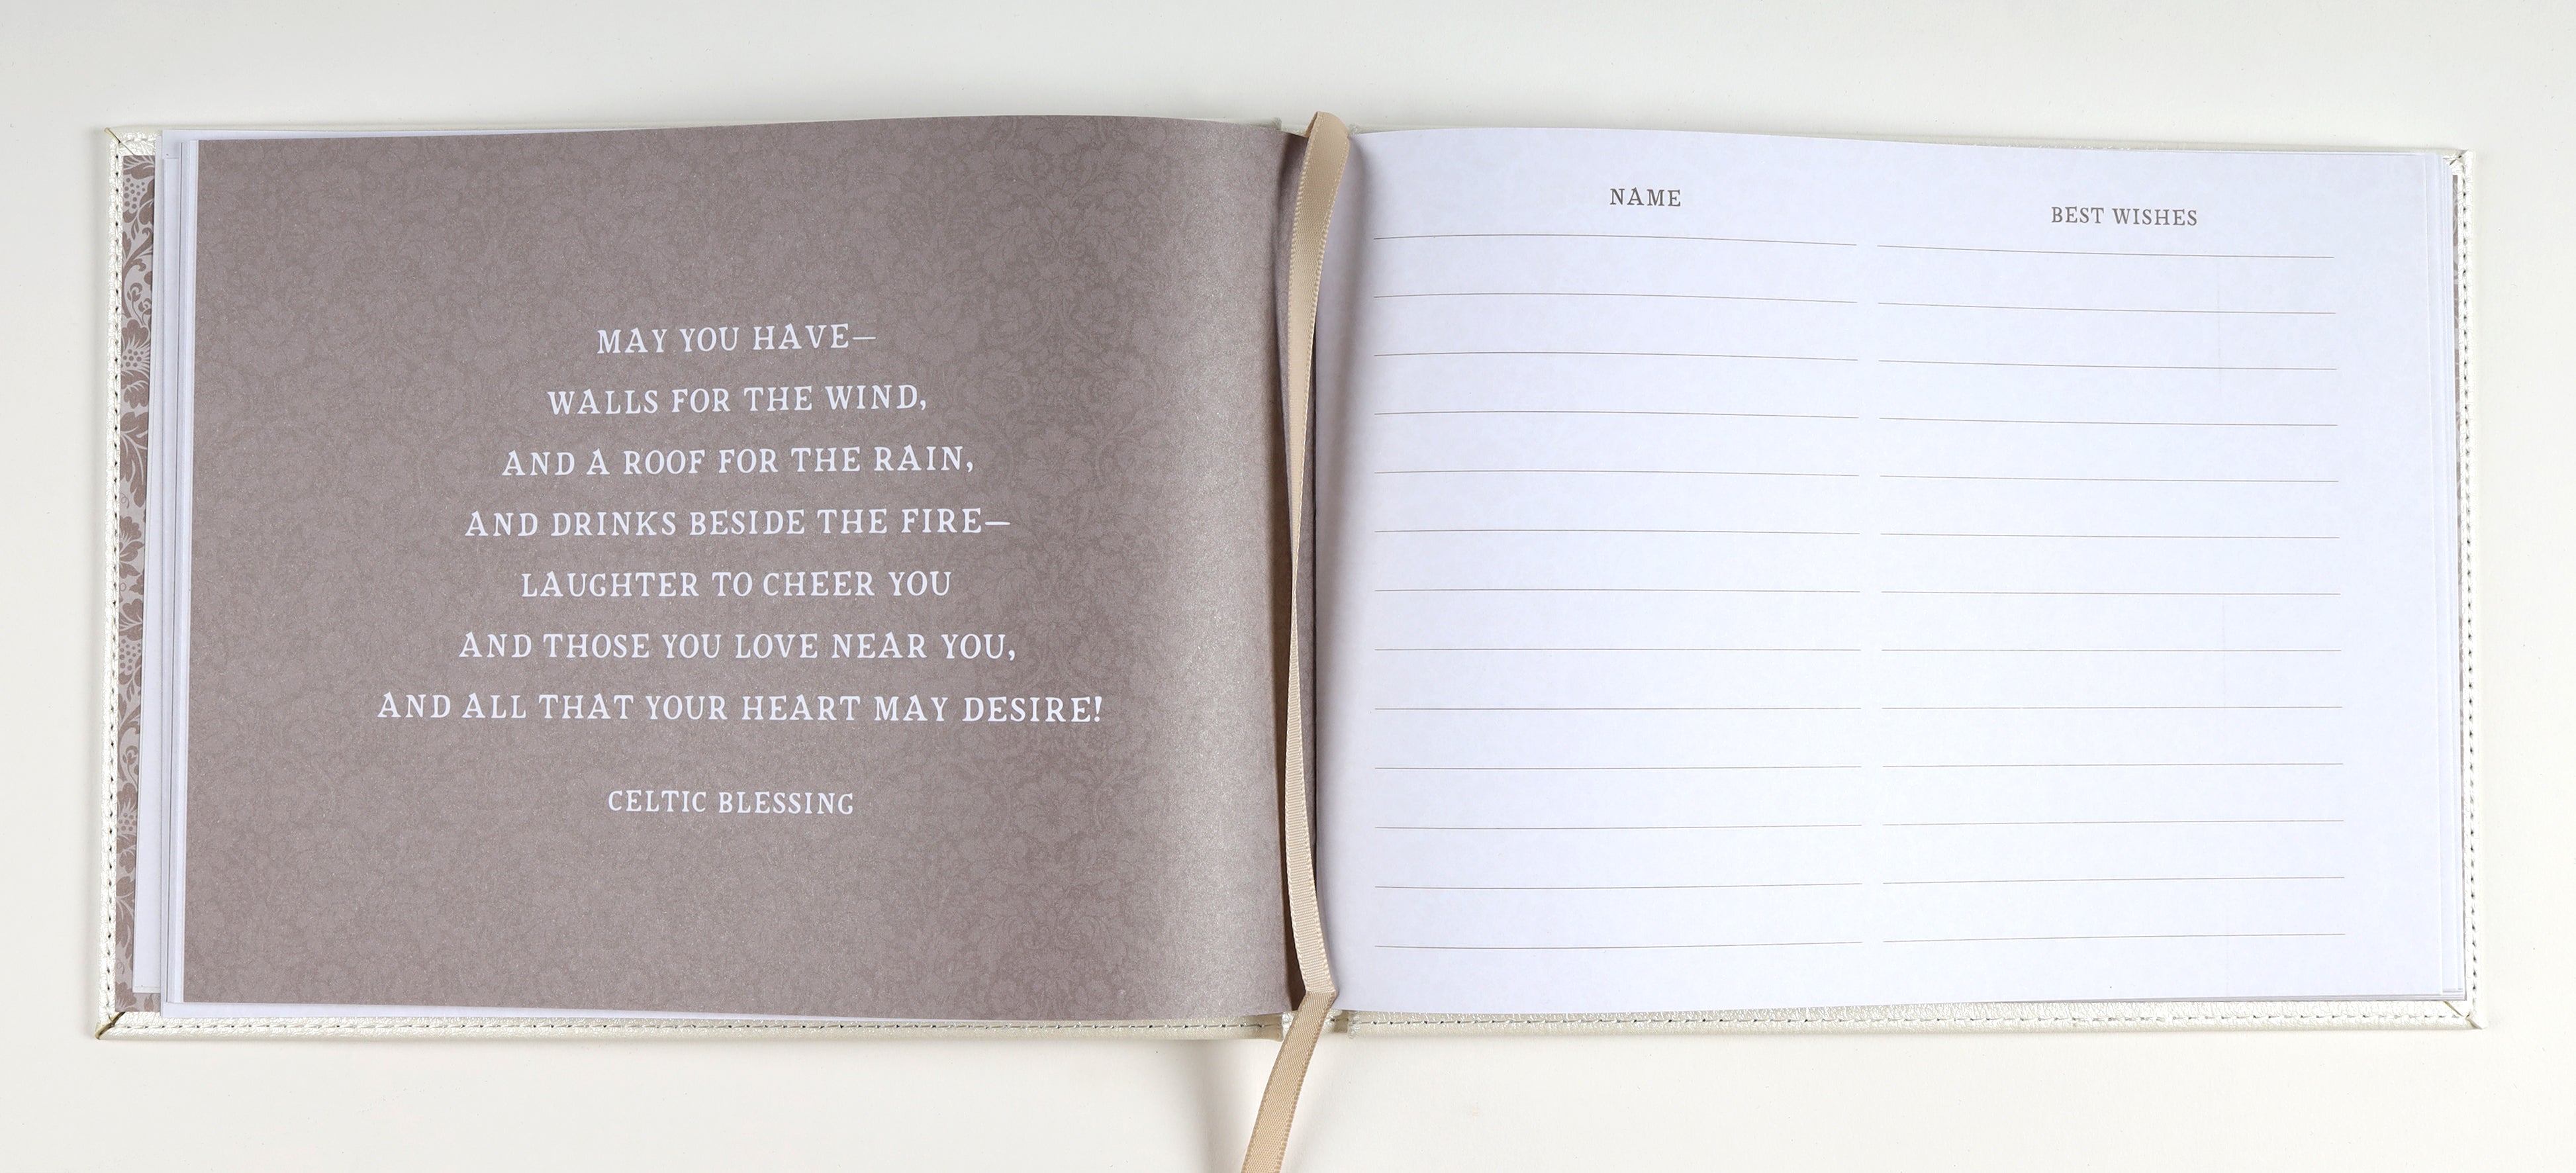 MAY YOU HAVE—
WALLS FOR THE WIND,
AND A ROOF FOR THE RAIN,
AND DRINKS BESIDE THE FIRE—
LAUGHTER TO CHEER YOU
AND THOSE YOU LOVE NEAR YOU,
AND ALL THAT YOUR HEART MAY DESIRE!
CELTIC BLESSING
NAME
BEST WISHES